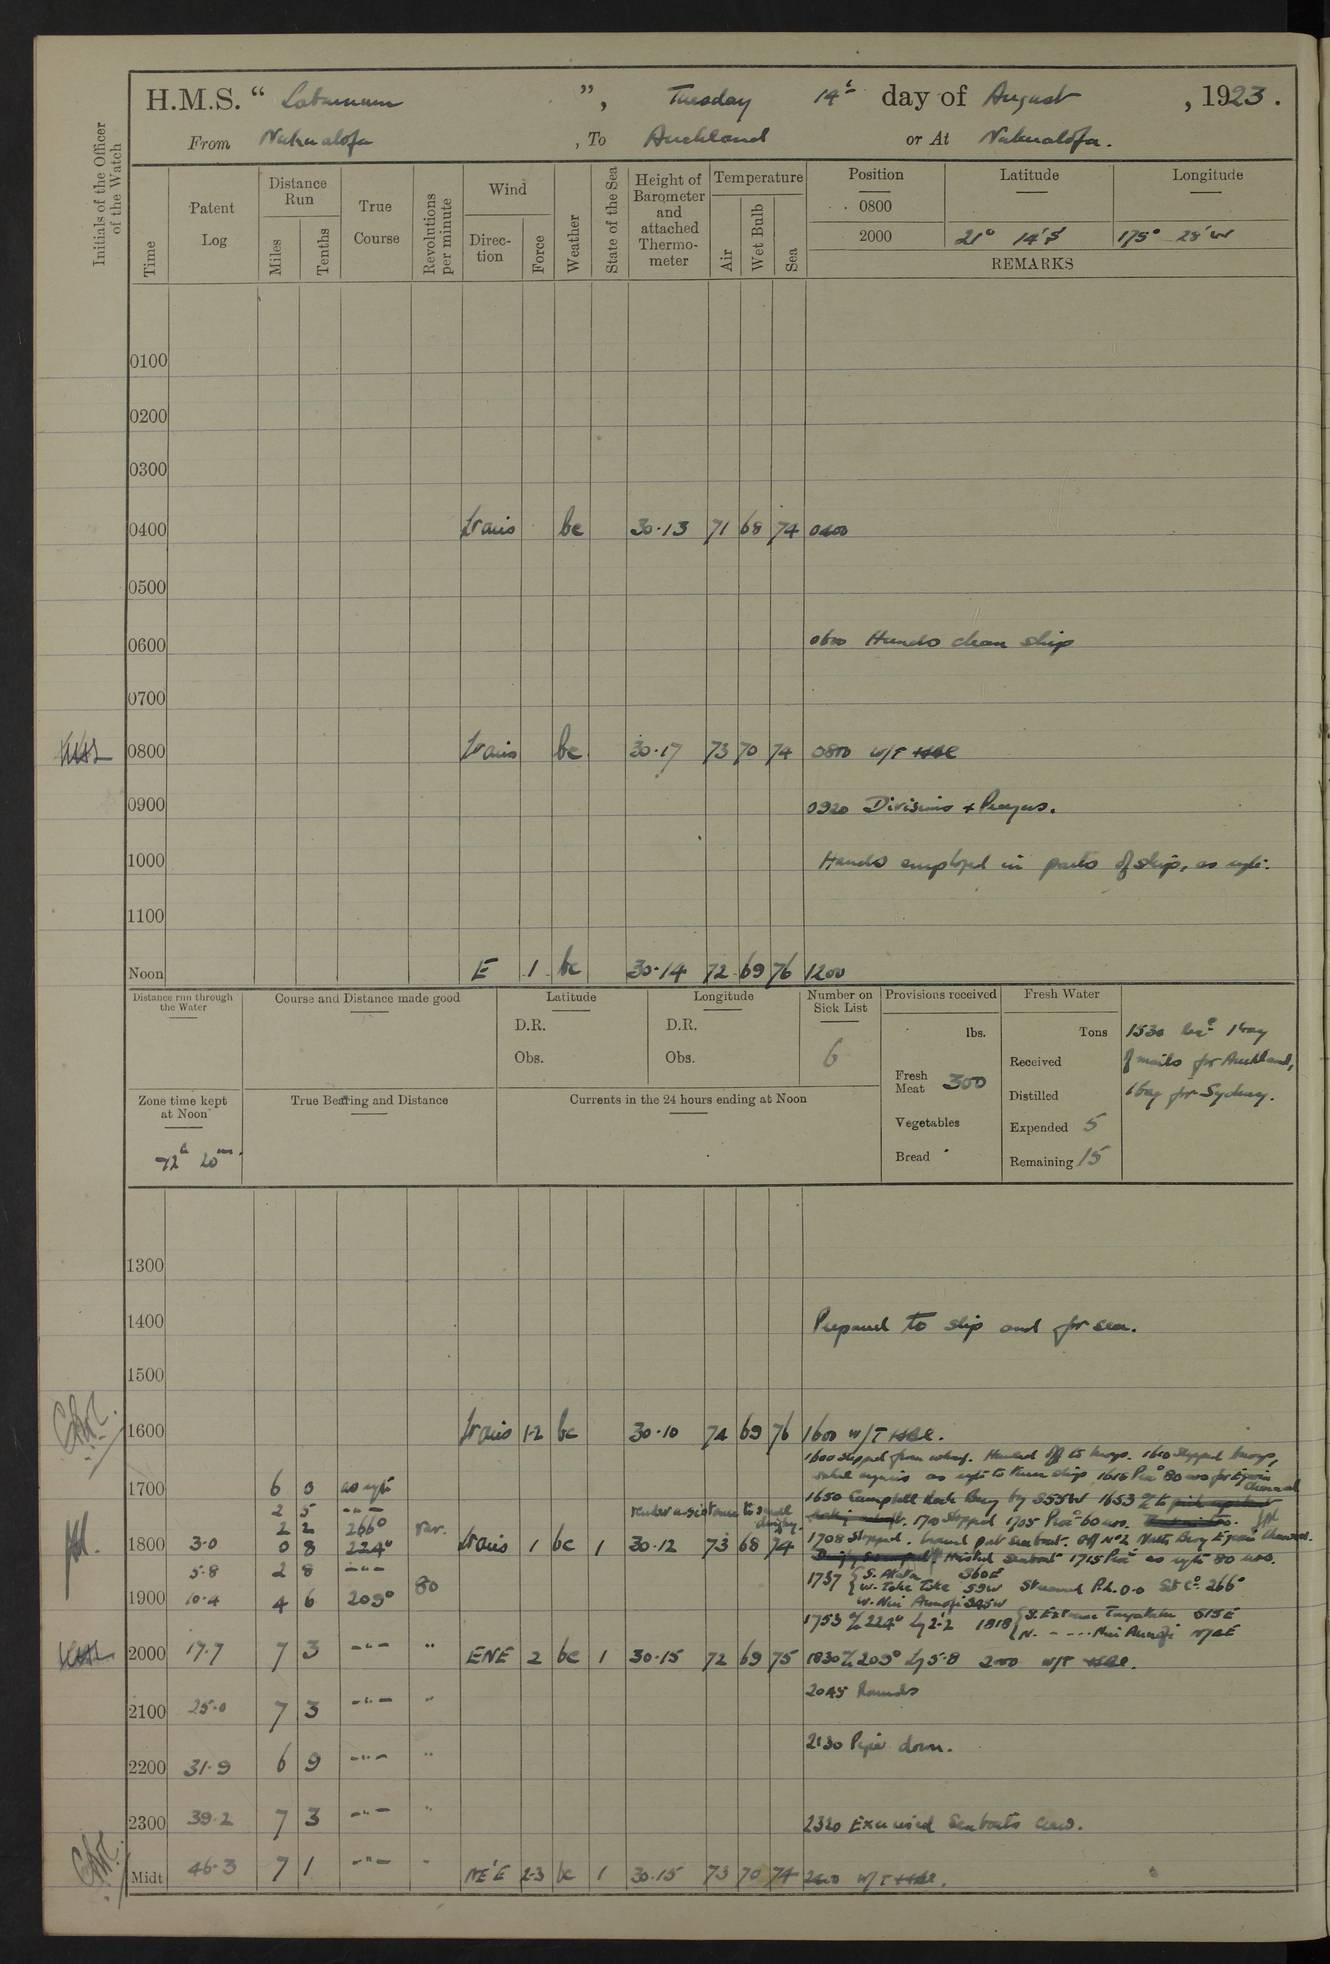 H.M.S. “ Laburnum ”, Tuesday 14th day of August, 1923.
From Nukualofa, To Auckland or At Nukualofa.
Initials of the Officer of the Watch
Time
Patent Log
Distance Run
Miles
Tenths
True Course
Revolutions per minute
Wind
Direc-tion
Force
Weather
State of the Sea
Height of Barometer and attached Thermo-meter
Temperature
Air
Wet Bulb
Sea
Position Latitude Longitude
0800
2000 21° 14'S 175° 28'W
REMARKS
0100
0200
0300
0400 bc 30.13 71 68 74 0400
0500
0600 0600 Hands clean ship
0700
0800 bc 30.17 73 70 74 0800 W/T
0900 0920 Divisions + Prayers.
1000 Hands employed in parts of ship, as
1100
Noon E 1 bc 30.14 72 69 76 1200
Distance run through the Water
Course and Distance made good
Latitude
D.R.
Obs.
Longitude
D.R.
Obs.
Number on Sick List
6
Provisions received
lbs.
Fresh Meat 300
Vegetables
Bread
Fresh Water
Tons
Received
Distilled
Expended 5
Remaining 15
1530 1 bag
of mails for Auckland,
1 bag for Sydney.
Zone time kept at Noon
-12h 20m.
True Bearing and Distance
Currents in the 24 hours ending at Noon
1300
1400 Prepared to slip and for sea.
1500
1600 1-2 bc 30.10 74 69 76 1600 W/T
1600 Slipped from wharf. Hauled off to buoys. 1610 Slipped buoys,
engines as to turn ship. 1616 80 for Egeria
Channel
1700 6 0 as
1650 Campbell Rock Buoy by S55W 1653 to
2 5 -"-
render assistance to small
dinghy. 1701 Stopped 1705 60
2 2 266° var.
1800 3.0 0 8 224° 1 bc 1 30.12 73 68 74 1708 Stopped. Off No 2 Buoy Egeria Channel.
Hoisted Seaboat 1715 as 80
5.8 2 8 -"-
1737 S. 360E
W. Toke Toke 59W P.L. 0.0 266°
1900 10.4 4 6 209° 80
1753 224° 2.2 1818
2000 17.7 7 3 -"- " ENE 2 bc 1 30.15 72 69 75 1830 209° 5.8 2000 W/T
2045 Rounds
2100 25.0 7 3 -"- "
2130 Pipe down.
2200 31.9 6 9 -"- "
2300 39.2 7 3 -"- " 2320 Exercised Seaboats crew.
Midt 46.3 7 1 -"- " NE'E 2-3 bc 1 30.15 73 70 74 2400 W/T